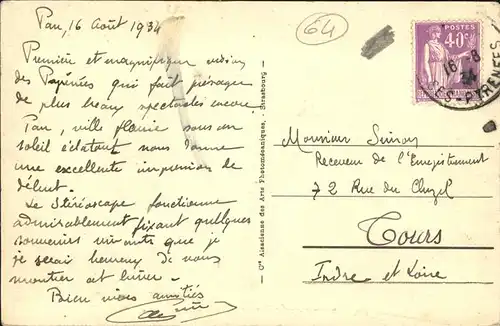 Pau, 16 Août 1934
Première et magnifique vision
des Pyrénées qui fait présager
de plus beaux spectacles encore.
Pau, ville fleurie sous un
soleil éclatant nous donne
une excellente impression de
début.
Le Stéréoscope fonctionne
admirablement fixant quelques
souvenirs vivants que je
je serai heureux de vous
montrer cet hiver.
Bien vives amitiés
64
POSTES
40c
16 -8
34
SES-PYRENEES
Cie Alsacienne des Arts Photomécaniques, - Strasbourg -
Monsieur Simon
Receveur de l'Enregistrement
72 Rue du
Tours
Indre et Loire